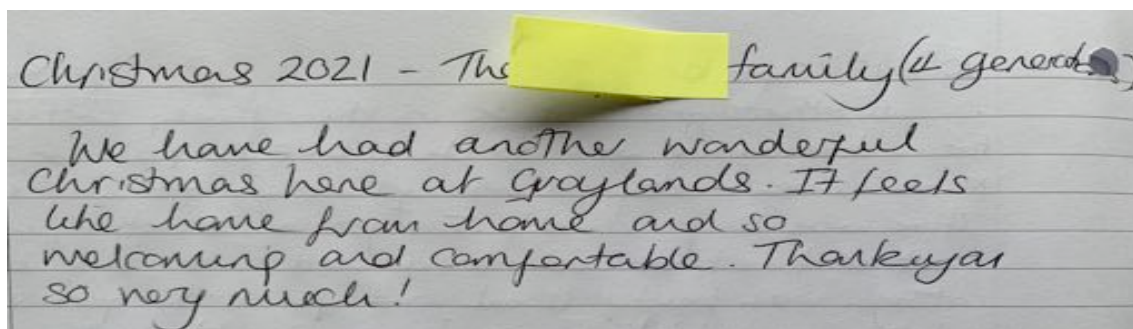 Christmas 2021 - The family (4 generat
We have had another wonderful
Christmas here at Graylands. It feels
like home from home and so
welcoming and comfortable. Thankyou
so very much!